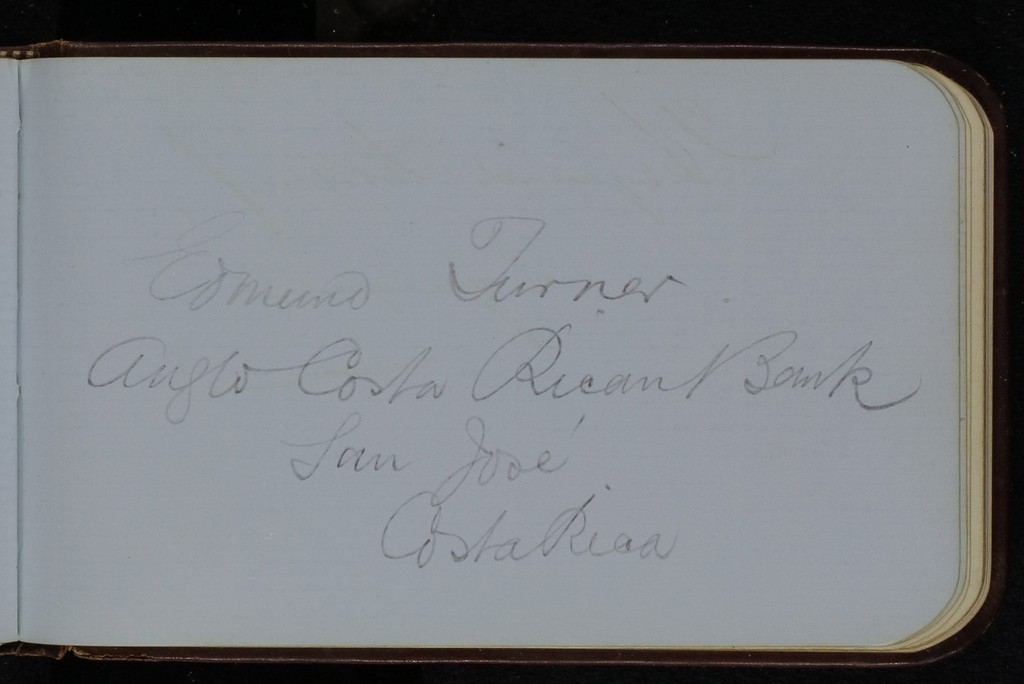 Edmund Turner
Anglo Costa Rican Bank
San José
Costa Rica